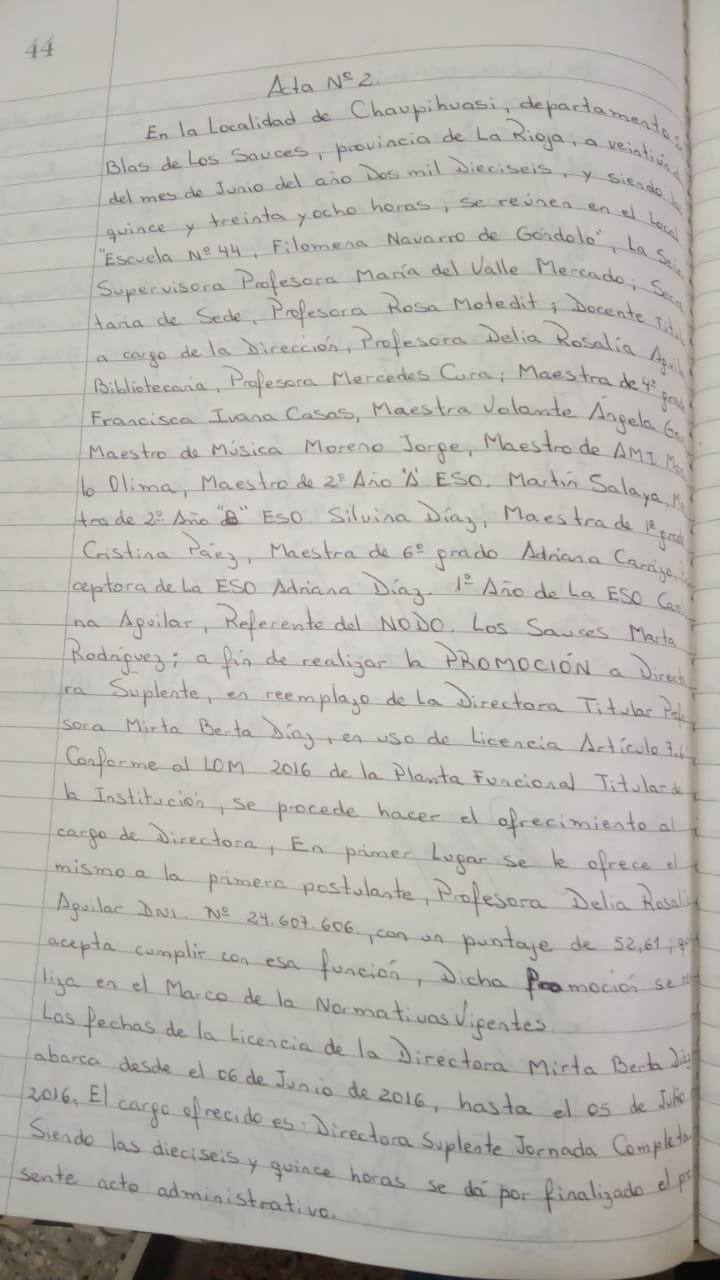 44
Acta Nº 2.
En la Localidad de Chaupihuasi, departamento
Blas de Los Sauces, provincia de La Rioja, a
del mes de Junio del año Dos mil Dieciseis, y siendo
quince y treinta y ocho horas, se reúnen en el Local
"Escuela Nº 44, Filomena Navarro de Góndolo", La
Supervisora Profesora María del Valle Mercado;
taria de Sede, Profesora Rosa Motedit; Docente
a cargo de la Dirección, Profesora Delia Rosalía
Bibliotecaria, Profesora Mercedes Cura; Maestra de 4º
Francisca Ivana Casas, Maestra Volante Ángela
Maestro de Música Moreno Jorge, Maestro de AMI
lo Olima, Maestro de 2º Año "A" ESO. Martín Salaya,
tra de 2º Año "B" ESO. Silvina Díaz, Maestra de 1º
Cristina Páez, Maestra de 6º grado Adriana
ceptora de la ESO Adriana Díaz. 1º Año de La ESO
na Aguilar, Referente del NODO. Los Sauces Marta
Rodríguez; a fin de realizar la PROMOCIÓN a
ra Suplente, en reemplazo de la Directora Titular
sora Mirta Berta Díaz, en uso de Licencia Artículo
Conforme al LOM 2016 de la Planta Funcional Titular de
la Institución, se procede hacer el ofrecimiento al
cargo de Directora, En primer Lugar se le ofrece el
mismo a la primera postulante, Profesora Delia
Aguilar DNI. Nº 24.607.606, con un puntaje de 52,61;
acepta cumplir con esa función, Dicha Promoción se
liza en el Marco de la Normativas Vigentes.
Las fechas de la Licencia de la Directora Mirta Berta Díaz
abarca desde el 06 de Junio de 2016, hasta el 05 de Julio
2016. El cargo ofrecido es: Directora Suplente Jornada Completa
Siendo las dieciseis y quince horas se dá por finalizado el
sente acto administrativo.